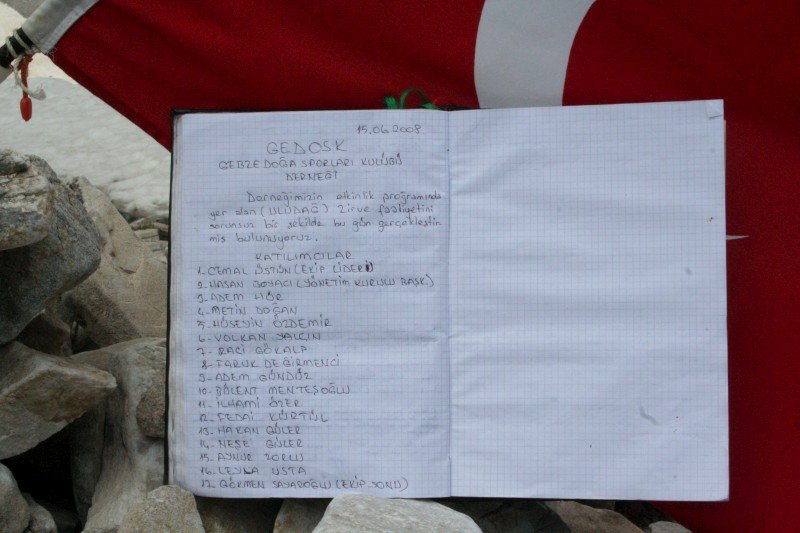 15.06.2008
GEDOSK
GEBZE DOĞA SPORLARI KULÜBÜ
DERNEĞİ
Derneğimizin etkinlik proğramında
yer alan (ULUDAĞ) Zirve faaliyetini
sorunsuz bir şekilde bu gün gerçekleştir
miş bulunuyoruz.
KATILIMCILAR
1- CEMAL ÜSTÜN (EKİP LİDERİ)
2- HASAN BOYACI (YÖNETİM KURULU BAŞK.)
3- ADEM HÜR
4- METİN DOĞAN
5- HÜSEYİN ÖZDEMİR
6- VOLKAN YALÇIN
7- RACİ GÖKALP
8- FARUK DEĞİRMENCİ
9- ADEM GÜNDÜZ
10- BÜLENT MENTEŞOĞLU
11- İLHAMİ ÖZER
12- FEDAİ KÜRTÜL
13- HAKAN GÜLER
14- NEŞE GÜLER
15- AYNUR ZORLU
16- LEYLA USTA
17- GÖRMEN SAYAROĞLU (EKİP SONU)